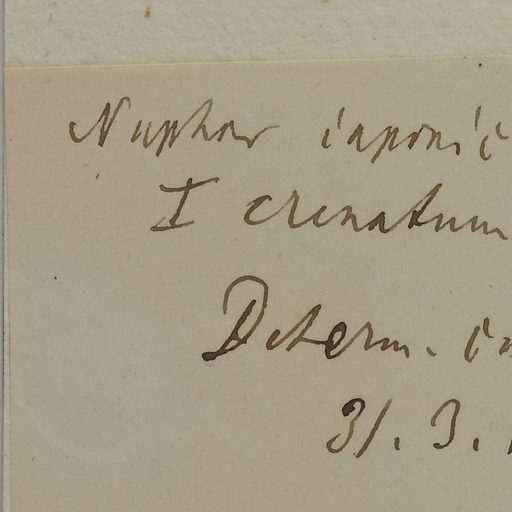 Nuphar iaponic
I crenatum
Determ.
31. 3.